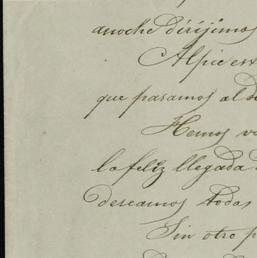 anoche dirijimos
Al pie est
que pasamos al d
Hemos v
la feliz llegada
deseamos todas
Sin otro p